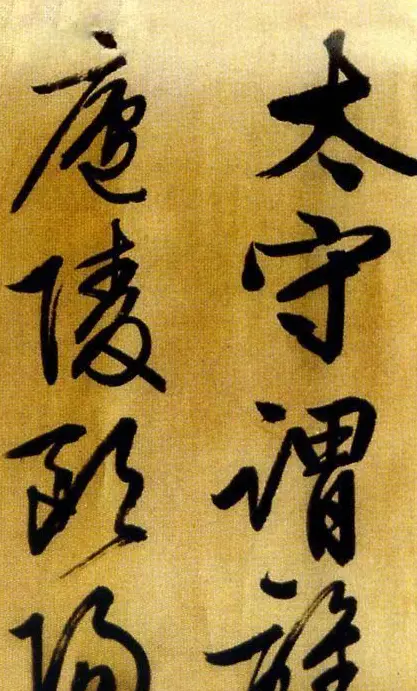 太守謂誰
廬陵歐陽